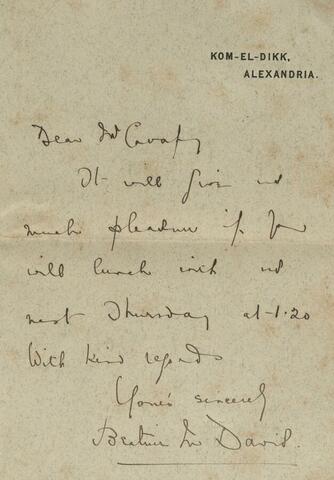 KOM-EL-DIKK,
ALEXANDRIA.
Dear Mr Cavafy
It will give us
much pleasure if you
will lunch with us
next Thursday at 1.20
With kind regards
Yours sincerely
Beatrice M David.